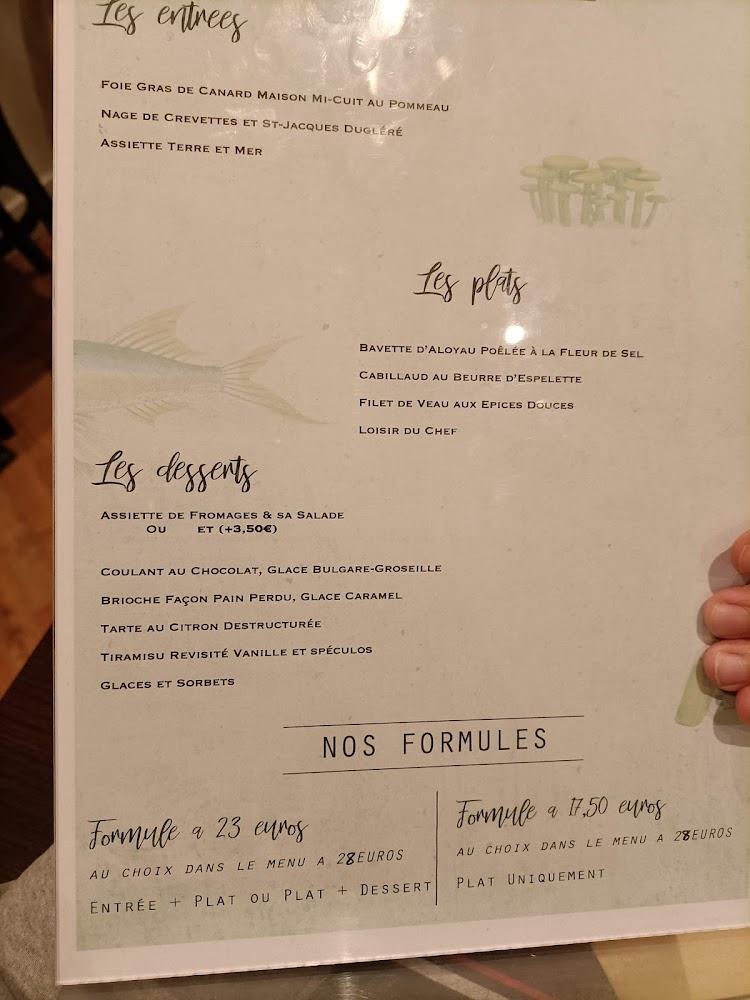 Les entrees
Foie Gras de Canard Maison Mi-Cuit au Pommeau
Nage de Crevettes et St-Jacques Dugléré
Assiette Terre et Mer
Les plats
Bavette d'Aloyau Poêlée à la Fleur de Sel
Cabillaud au Beurre d'Espelette
Filet de Veau aux Epices Douces
Loisir du Chef
Les desserts
Assiette de Fromages & sa Salade
Ou et (+3,50€)
Coulant au Chocolat, Glace Bulgare-Groseille
Brioche Façon Pain Perdu, Glace Caramel
Tarte au Citron Destructurée
Tiramisu Revisité Vanille et spéculos
Glaces et Sorbets
NOS FORMULES
Formule a 23 euros
AU CHOIX DANS LE MENU A 28EUROS
Entrée + Plat ou Plat + Dessert
Formule a 17,50 euros
AU CHOIX DANS LE MENU A 28EUROS
Plat Uniquement